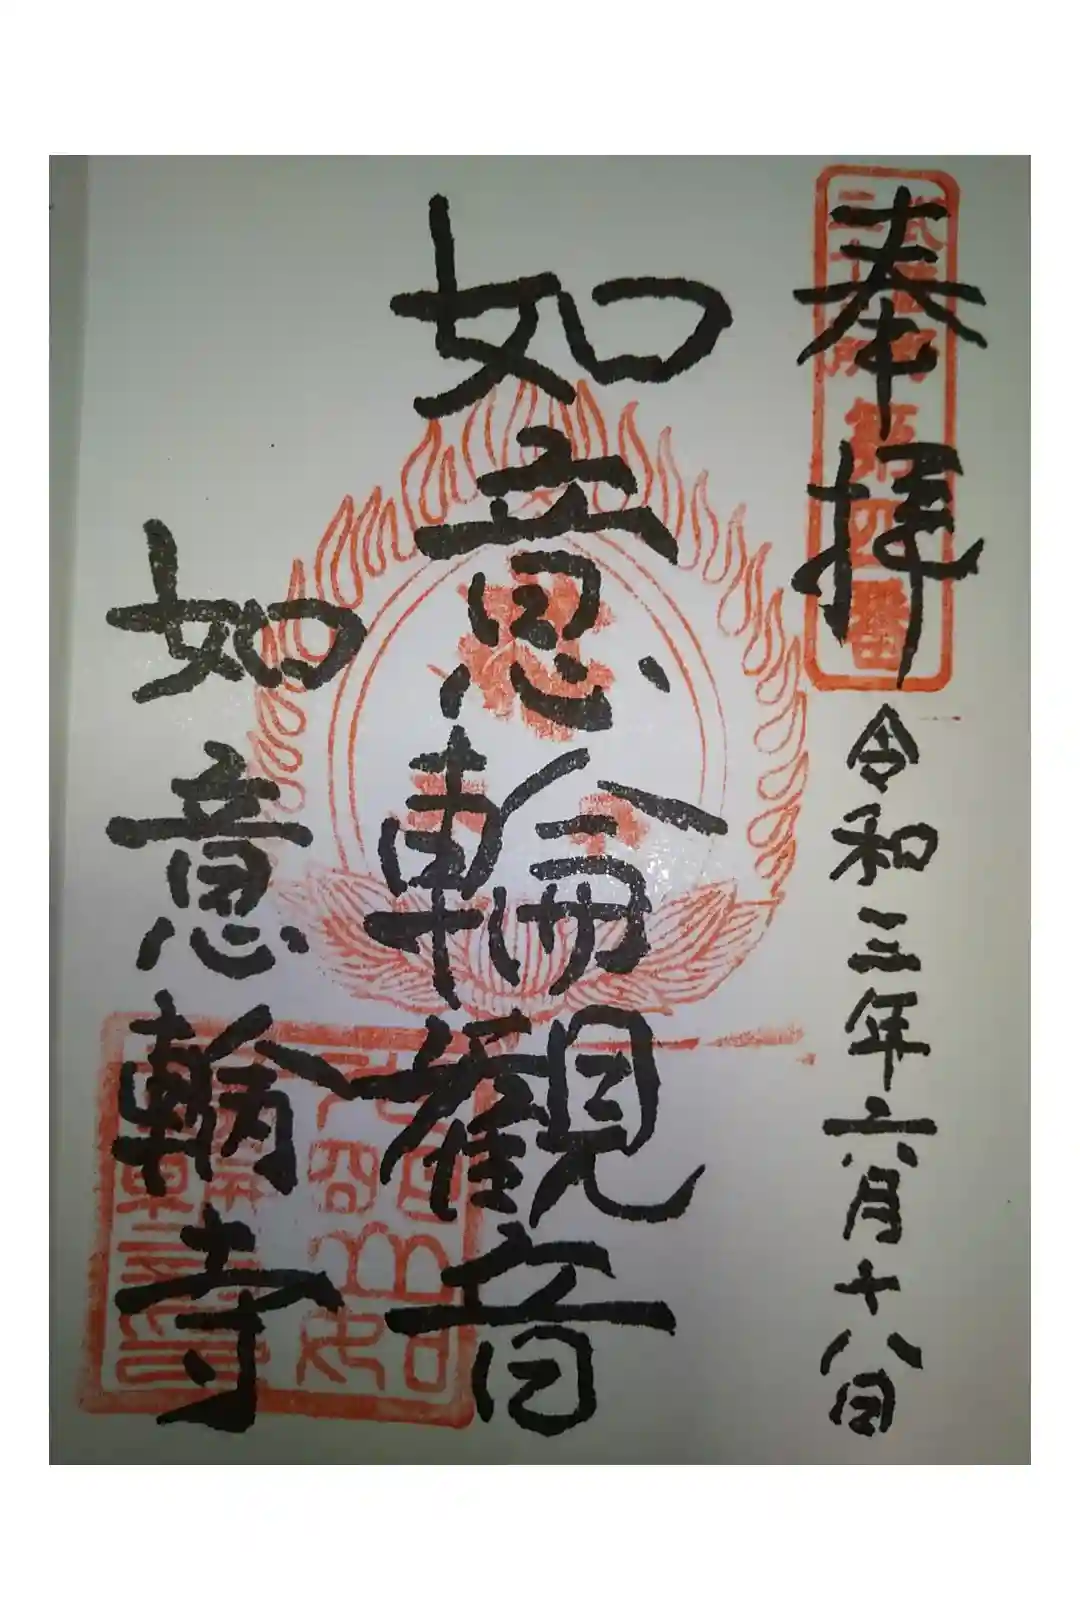 奉拝
第四番
令和三年六月十八日
如意輪観音
如意輪寺